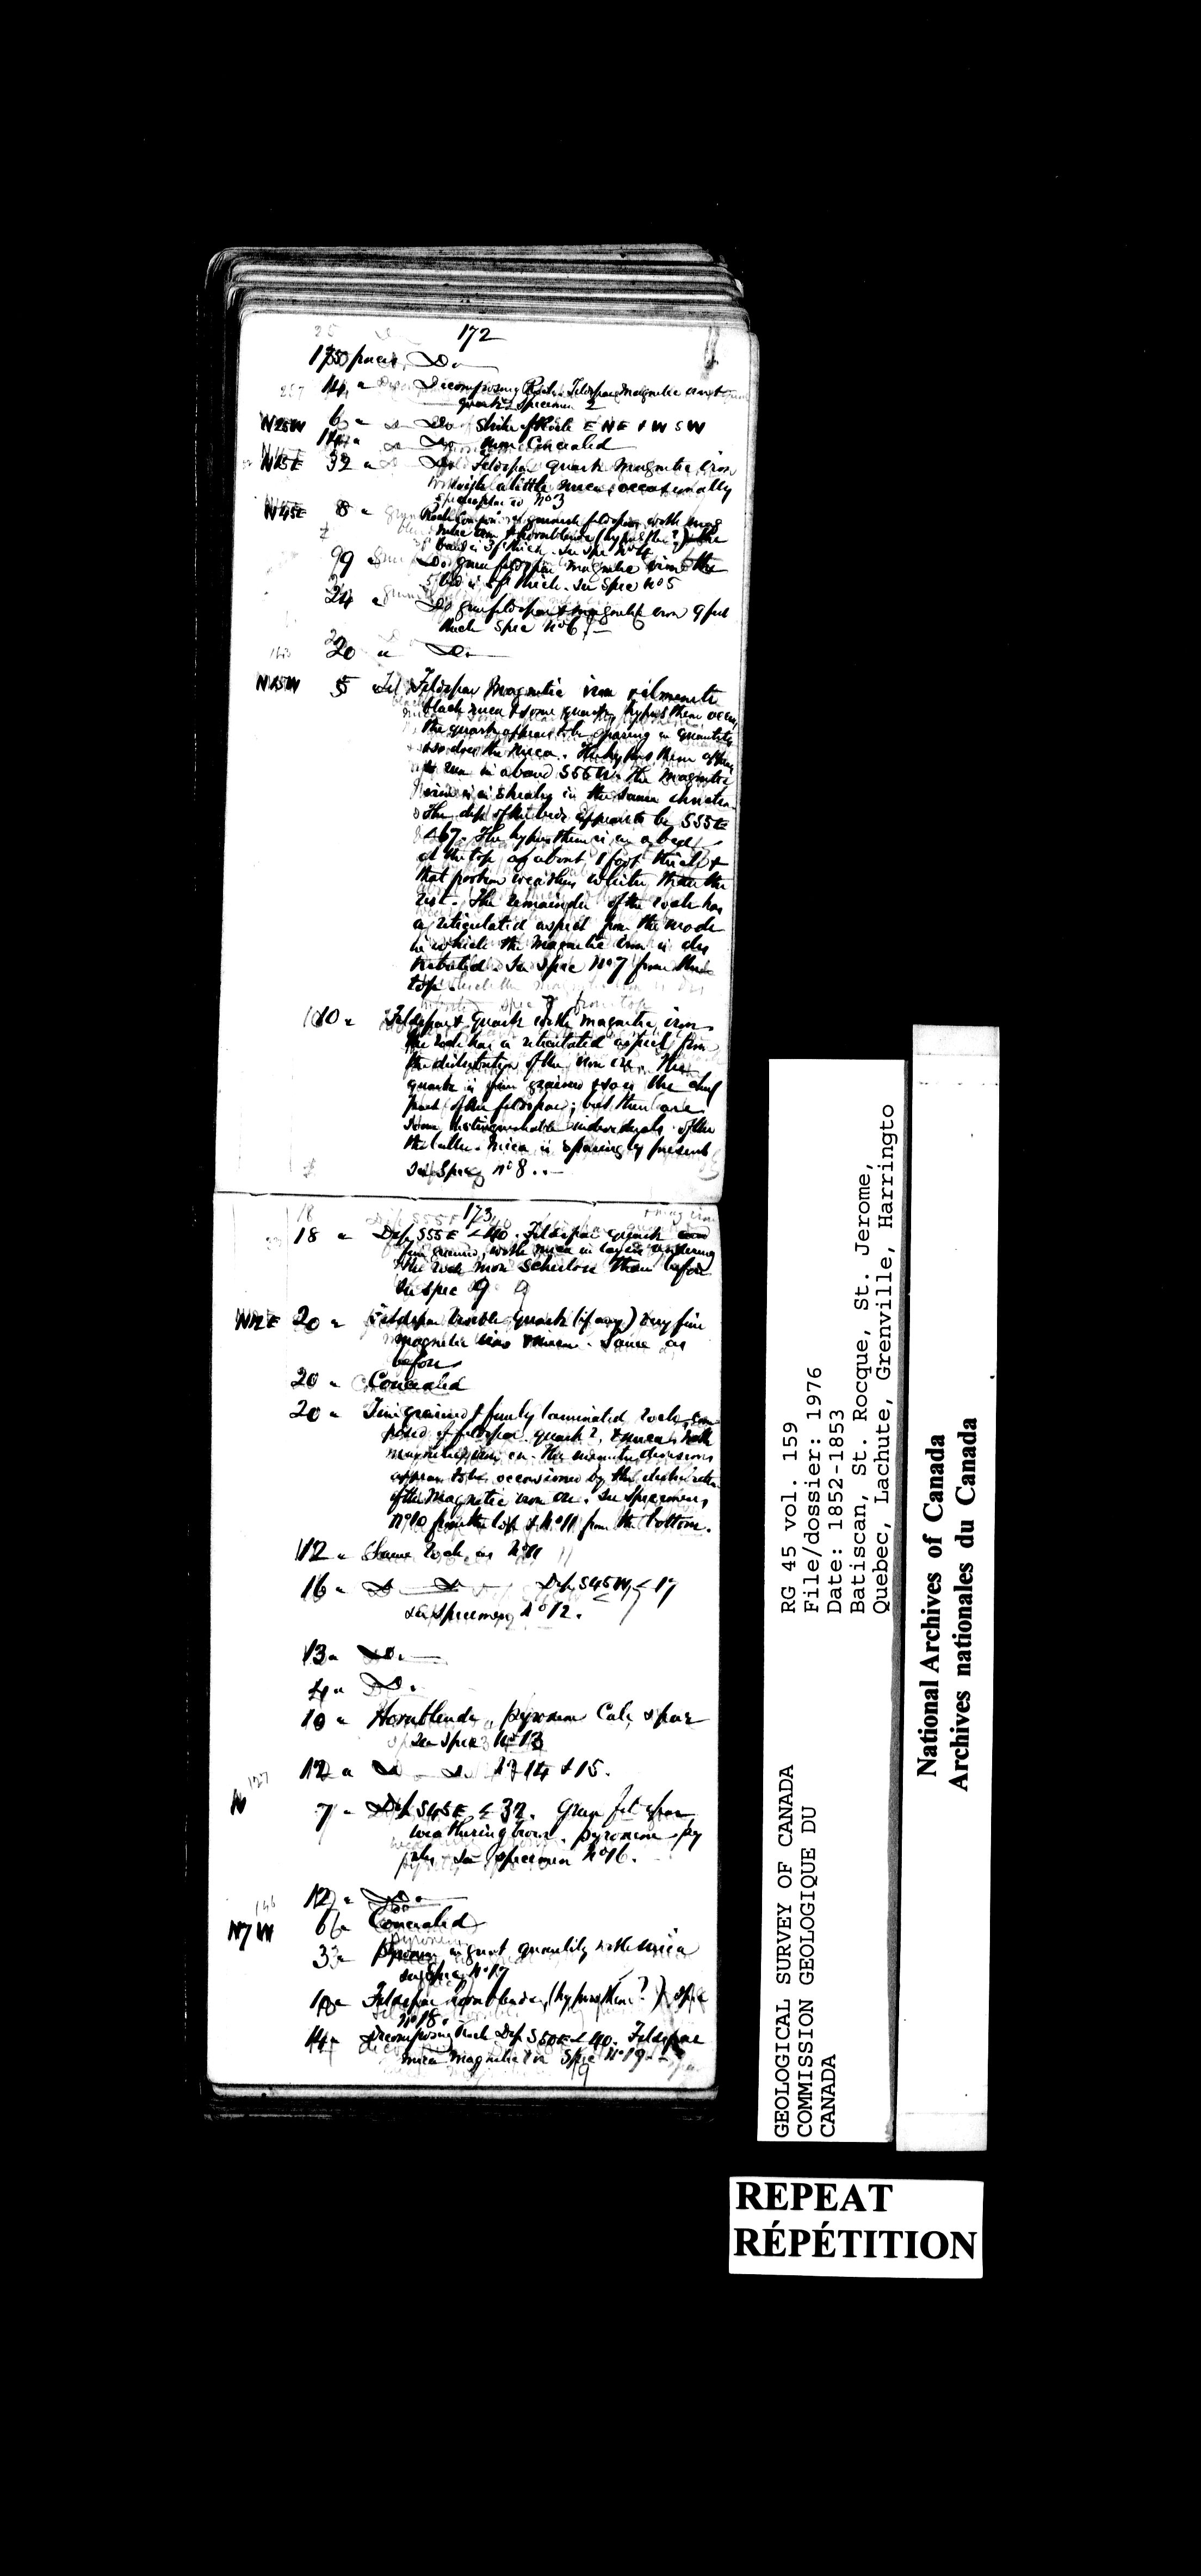 172
1350 paces Do
14 " Decomposing Rock. Feldspar Magnetic iron &
quartz Specimen 2
N25W 6 " Do Strike of Rock E N E & W S W
14 " Do Concealed
N15E 32 " Do Feldspar quartz magnetic iron
with a little mica occasionally
specimen no 3
N45E 8 " Rock composed of quartz feldspar with mag
netic iron & hornblende (hypersthe?) the
band is 3 ft thick. See Spe No 4
99 Do feldspar magnetic iron the
bed is 5 ft thick. See Spec No 5
24 " Do feldspar & magnetic iron 9 feet
thick Spec No 6
20 " Do
N15W 5 Feldspar Magnetic iron ilmenite
black mica & some quartz, hypersthene occurs
the quartz appears to be sparing in quantity
& so does the mica. The hypersthene
run in a band S55W. The magnetic
iron is in streaks in the same direction.
The dip of the beds appears to be S35E
<67. The hypersthene is in a bed
at the top of about 1 foot thick &
that portion weathers whiter than the
rest. The remainder of the rock has
a reticulated aspect from the mode
in which the magnetic iron is dis
tributed. See Spec No 7 from the
top.
10 " Feldspar & quartz with magnetic iron
the rock has a reticulated aspect from
the distribution of the iron ore. The
quartz is fine grained & so is the chief
part of the feldspar; but there are
some distinguishable individuals of the
the latter. Mica is sparingly present
See Spec no 8.
173
18 " Dip S55E <40. Feldspar quartz
fine grained, with mica in layers rendering
the rock more schistose than before
See spec 9
N12E 20 " Feldspar visible quartz (if any) very fine
magnetic iron & mica. Same as
before
20 " Concealed
20 " Fine grained & finely laminated rock com
posed of feldspar quartz?, & mica with
magnetic iron ore. The minute divisions
appear to be occasioned by the distribution
of the Magnetic iron ore. See specimens
No 10 from the top & No 11 from the bottom.
12 " Same rock as No 11
16 " Do Do Dip S45W < 17
See specimen No 12.
13 " Do
4 " Do
10 " Hornblende, pyroxene Calc spar
See spec No 13
12 " Do Do No 14 & 15.
127
N 7 " Dip S45E < 32. Green feldspar
weathering brown. pyroxene py
rites See specimen No 16.
12 " Do
146
N7W 6 " Concealed
33 " Pyroxene in great quantity with mica
See Spec No 17
18 " Feldspar hornblende (hypersthene?) Spec
No 18.
14 " Decomposing Rock Dip S50E < 40. Feldspar
mica magnetic iron Spec No 19
GEOLOGICAL SURVEY OF CANADA
COMMISSION GEOLOGIQUE DU
CANADA
RG 45 vol. 159
File/dossier: 1976
Date: 1852-1853
Batiscan, St. Rocque, St. Jerome,
Quebec, Lachute, Grenville, Harringto
National Archives of Canada
Archives nationales du Canada
REPEAT
RÉPÉTITION